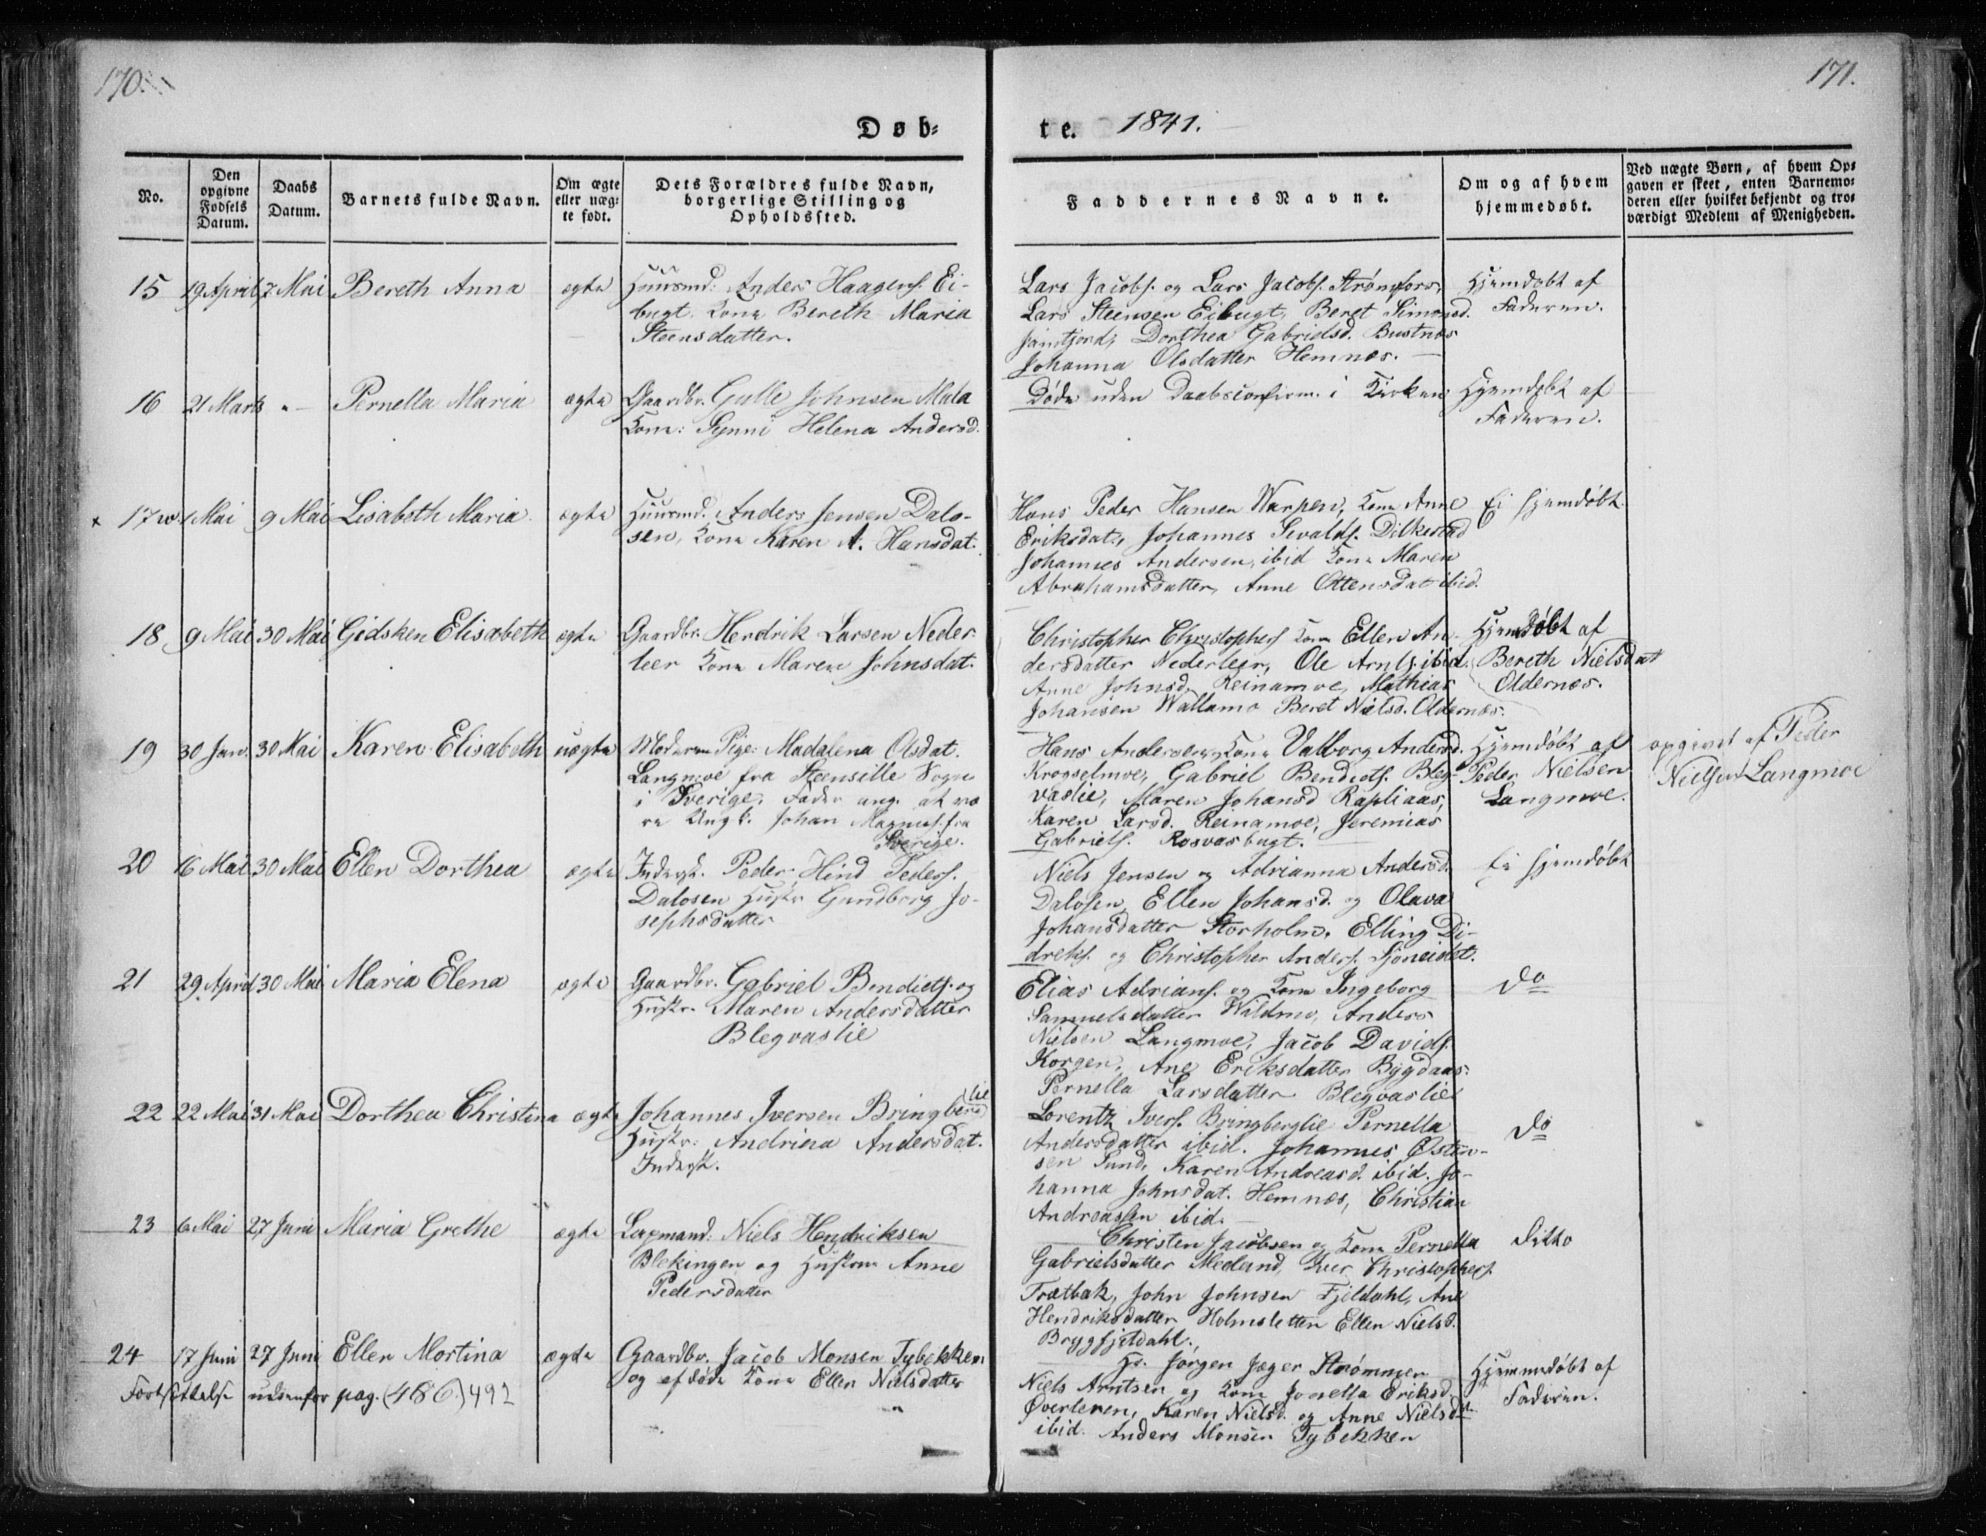 170.
171.
Døb-
te. 1841.
No.
Den opgivne Fødsels Datum.
Daabs Datum.
Barnets fulde Navn.
Om ægte eller uæg-te født.
Dets Forældres fulde Navn, borgerlige Stilling og Opholdssted.
Faddernes Navne.
Om og af hvem hjemmedøbt.
Ved uægte Børn, af hvem Op-gaven er skeet, enten Barnemo-deren eller hvilket bekjendt og tro-værdigt Medlem af Menigheden.
15 19 April 7 Mai Bereth Anna ægte Huusmd: Anders Haagens. Ei-
bugt. Kone Bereth Maria
Steensdatter.
Lars Jacobs. og Lars Jacobs. Strømfors,
Lars Steensen Eibugt, Beret Simonsd.
Dorthea Gabrielsd. Bustnæs
Johanna Olsdatter Hemnæs. —
Hjemdøbt af
Faderen.
16 21 Marts " — Pernella Maria ægte Gaardbr. Gulle Johnsen Mula
Kone: Synni Helena Andersd.
Døde uden Daabsconfirm. i Kirken
Hjemdøbt af
Faderen.
x 17 1 Mai 9 Mai Lisabeth Maria ægte Huusmd. Anders Jensen Dalo-
sen, Kone Karen A. Hansdat.
Hans Peder Hansen Warpen, Kone Anne
Eriksdat., Johannes Sivalds. Dilkestad
Johannes Andersen, ibid Kone Maren
Abrahamsdatter, Anne Ottensdat ibid.
Ei hjemdøbt.
18 9 Mai 30 Mai Gidsken Elisabeth ægte Gaardbr. Hendrik Larsen Neder-
leer Kone Maren Johnsdat.
Christopher Christophers Kone Ellen An-
dersdatter Nederleer, Ole Arnts. ibid.
Anne Johnsd. Reinamoe, Mathias
Johansen Wallamo Beret Nielsd. Oldernæs.
Hjemdøbt af
Bereth Nielsdat
Oldernæs.
19 30 Jan. 30 Mai Karen Elisabeth uægte Moderen Pige: Madalena Olsdat.
Langmoe fra Steensille Sogn
i Sverige, Fader ang. at væ
re Ungk. Johan Magnus. fra
Sverige.
Hans Andersen, Kone Valborg Andersd.
Krogselmoe, Gabriel Bendicts. Bleg-
vaslie, Maren Johansd Rapliaas,
Karen Larsd. Reinamoe, Jeremias
Gabriels. Rosvasbugt.
Hjemdøbt af
Peder Nielsen
Langmoe.
opgivet af Peder
Nielsen Langmoe
20 16 Mai 30 Mai Ellen Dorthea ægte Inderst. Peder Hind Peders.
Dalosen Hustr Gundborg Jo-
sephsdatter
Niels Jensen og Adrianna Andersd.
Dalosen, Ellen Johansd. og Olava
Johansdatter Storholm. Elling Di-
dreks. og Christopher Anders. Sjoneidet.
Ei hjemdøbt
21 29 April 30 Mai Maria Elena ægte Gaardbr. Gabriel Bendicts. og
Hustr. Maren Andersdatter
Blegvaslie
Elias Adrians. og Kone Ingeborg
Samuelsdatter Waldmo, Anders
Nielsen Langmoe, Jacob Davids.
Korgen, Ane Eriksdatter Bygdaas.
Pernella Larsdatter Blegvaslie
Do
22 22 Mai 31 Mai Dorthea Christina ægte Johannes Iversen Bringberg
lie
Hustr: Andrina Andersdat.
Inderst.
Lorentz Ivers. Bringberglie Pernella
Andersdatter ibid. Johannes Østen-
sen Sund, Karen Andreasd. ibid. Jo-
hanna Johnsdat. Hemnæs, Christian
Andreassen ibid.
Do
23 6 Mai 27 Juni Maria Grethe ægte Lapmand: Niels Hendriksen
Blekingen og Hustrue Anne
Pedersdatter
Christen Jacobsen og Kone Pernella
Gabrielsdatter Medund, Christophers.
Frætbak, John Johnsen Fjeldahl, Ane
Hendriksdatter Holmsletten Ellen Nielsd.
Brygfjeldahl.
Ditto
24 17 Juni 27 Juni Ellen Mortina ægte Gaardbr. Jacob Monsen Tybekken
og afdøde Kone Ellen Nielsdatter
"
Hr. Jørgen Jæger Strømmen
Niels Arntsen og Kone Jonella Eriksd.
Øverleren, Karen Nielsd. og Anne Nielsdt.
ibid. Anders Monsen Tybekken
Hjemmedøbt af
Faderen.
Fortsættelse udenfor pag. (486.) 492